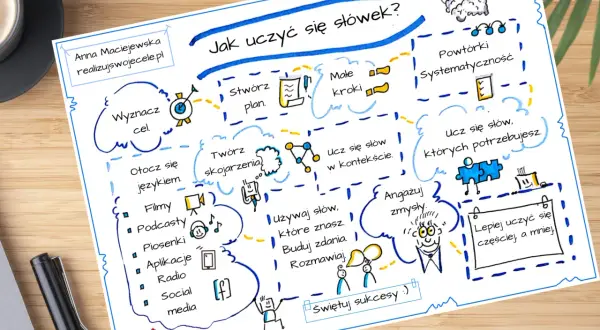 Anna Maciejewska
realizujswojecele.pl
Jak uczyć się słówek?
Wyznacz
cel.
Stwórz
plan.
Małe
kroki
Powtórki
Systematyczność
Otocz się
językiem
Filmy
Podcasty
Piosenki
Aplikacje
Radio
Social
media
Twórz
skojarzenia
Ucz się słów
w kontekście.
Ucz się słów,
których potrzebujesz
Używaj słów,
które znasz
Buduj zdania
Rozmawiaj
Angażuj
zmysły.
Lepiej uczyć się
częściej, a mniej
Świętuj sukcesy :)